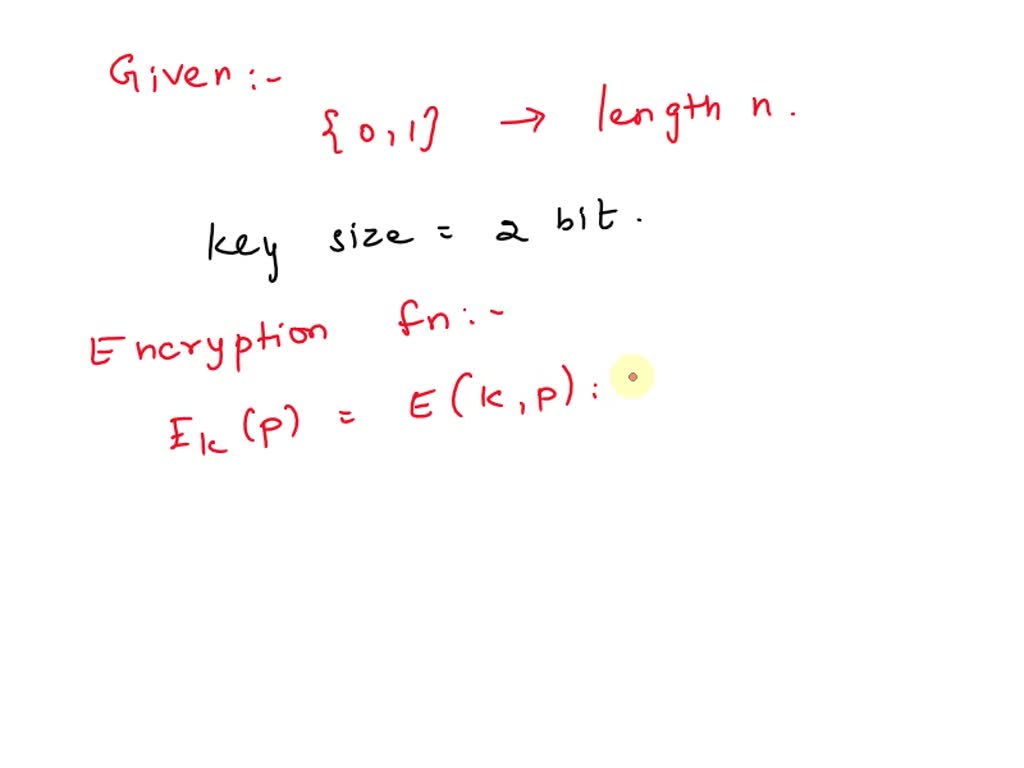 Given :-
{0,1} → length n.
key size = 2 bit.
Encryption fn :-
Ek (p) = E (k, p) :